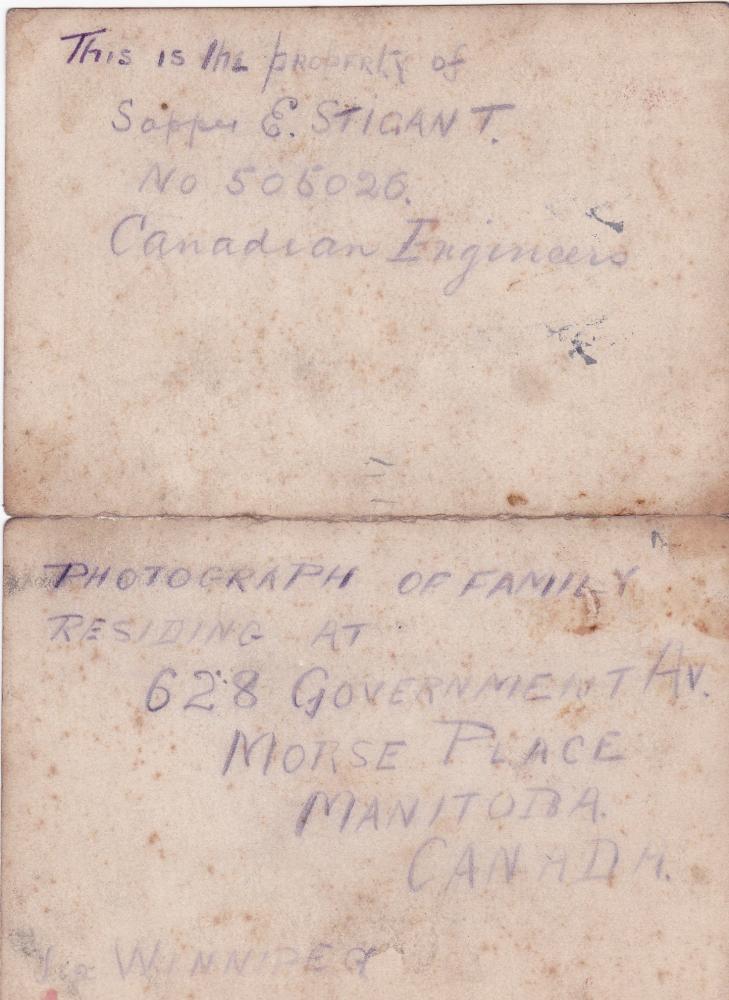 This is the property of
Sapper E. STIGANT.
No 505026.
Canadian Engineers
PHOTOGRAPH OF FAMILY
RESIDING AT
628 GOVERNMENT AV.
MORSE PLACE
MANITOBA.
CANADA.
WINNIPEG